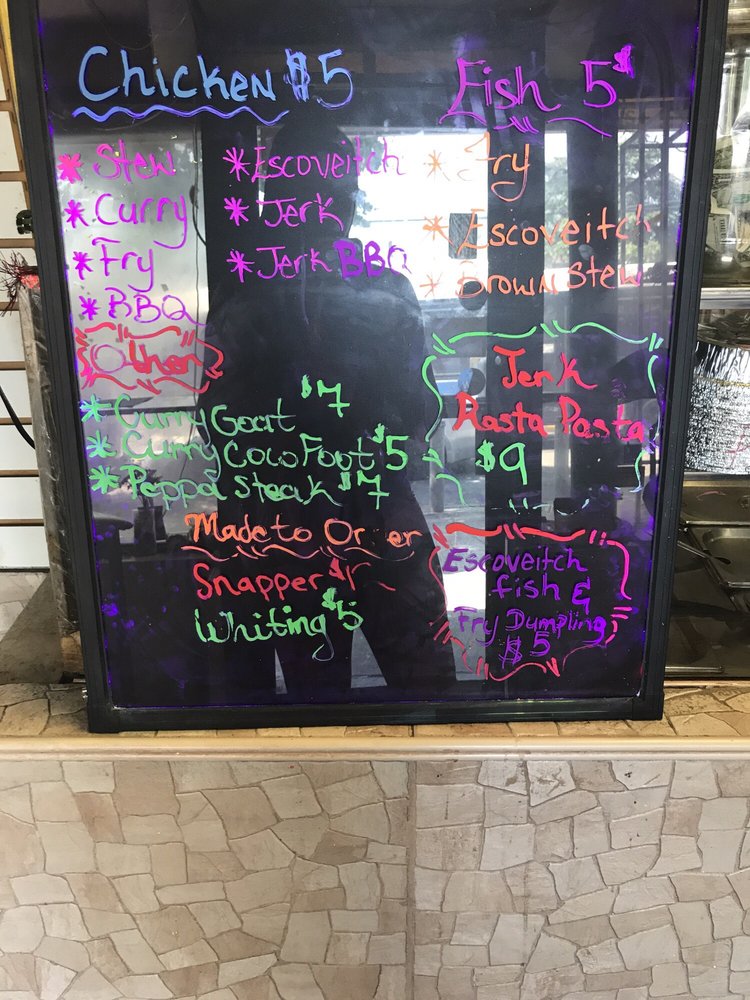 Chicken $5
* Stew
* Curry
* Fry
* BBQ
* Escoveitch
* Jerk
* Jerk BBQ
Fish 5$
* Fry
* Escoveitch
* Brown Stew
Other
* Curry Goat $7
* Curry Cow Foot $5
* Peppa Steak $7
Jerk
Rasta Pasta
$9
Made to Or er
Snapper
Whiting $5
Escoveitch
fish &
Fry Dumpling
$5